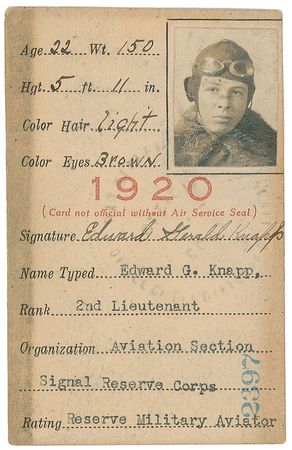 Age 22 Wt. 150
Hgt. 5 ft. 11 in.
Color Hair Light
Color Eyes Brown
1920
(Card not official without Air Service Seal)
Signature Edward Gerald Knapp
Name Typed Edward G. Knapp,
Rank 2nd Lieutenant
Organization Aviation Section
Signal Reserve Corps
Rating Reserve Military Aviator
2397